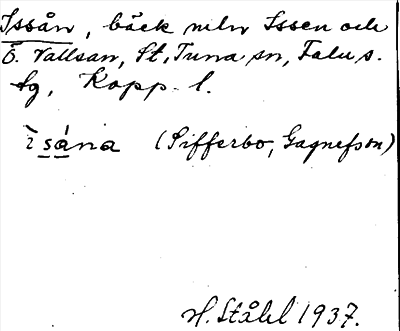 Issån, bäck mln Issen och
Ö. Vallsan, St. Tuna sn, Falu s.
tg, Kopp. l.
ìsána (Sifferbo, Gagnefsn)
H. Ståhl 1937.